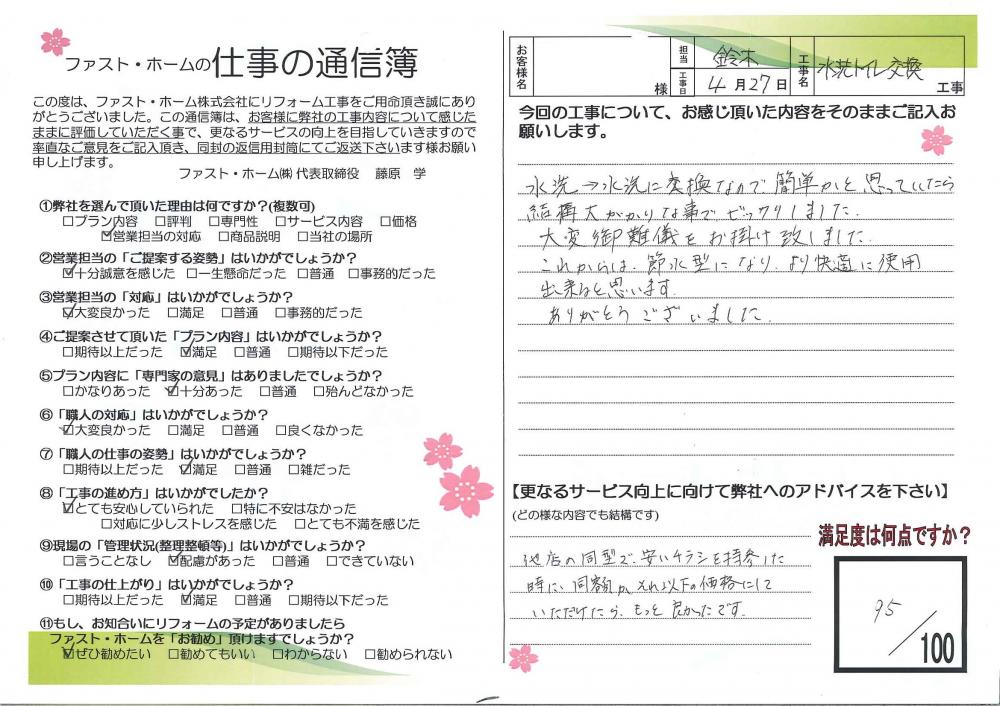 ファスト・ホームの仕事の通信簿
この度は、ファスト・ホーム株式会社にリフォーム工事をご用命頂き誠にあり
がとうございました。この通信簿は、お客様に弊社の工事内容について感じた
ままに評価していただく事で、更なるサービスの向上を目指していきますので
率直なご意見をご記入頂き、同封の返信用封筒にてご返送下さいます様お願い
申し上げます。
ファスト・ホーム㈱ 代表取締役 藤原 学
①弊社を選んで頂いた理由は何ですか？(複数可)
□プラン内容 □評判 □専門性 □サービス内容 □価格
☑営業担当の対応 □商品説明 □当社の場所
②営業担当の「ご提案する姿勢」はいかがでしょうか？
☑十分誠意を感じた □一生懸命だった □普通 □事務的だった
③営業担当の「対応」はいかがでしょうか？
☑大変良かった □満足 □普通 □事務的だった
④ご提案させて頂いた「プラン内容」はいかがでしょうか？
□期待以上だった ☑満足 □普通 □期待以下だった
⑤プラン内容に「専門家の意見」はありましたでしょうか？
□かなりあった ☑十分あった □普通 □殆んどなかった
⑥「職人の対応」はいかがでしょうか？
☑大変良かった □満足 □普通 □良くなかった
⑦「職人の仕事の姿勢」はいかがでしょうか？
□期待以上だった ☑満足 □普通 □雑だった
⑧「工事の進め方」はいかがでしたか？
☑とても安心していられた □特に不安はなかった
□対応に少しストレスを感じた □とても不満を感じた
⑨現場の「管理状況(整理整頓等)」はいかがでしょうか？
□言うことなし ☑配慮があった □普通 □できていない
⑩「工事の仕上がり」はいかがでしょうか？
□期待以上だった ☑満足 □普通 □期待以下だった
⑪もし、お知合いにリフォームの予定がありましたら
ファスト・ホームを「お勧め」頂けますでしょうか？
☑ぜひ勧めたい □勧めてもいい □わからない □勧められない
お客様名 様 担当 鈴木 工事日 4月27日 工事名 水洗トイレ交換 工事
今回の工事について、お感じ頂いた内容をそのままご記入お
願いします。
水洗→水洗に変換なので簡単かと思っていたら
結構大がかりな事でビックリしました.
大変御難儀をお掛け致しました.
これからは、節水型になり、より快適に使用
出来ると思います.
ありがとうございました.
【更なるサービス向上に向けて弊社へのアドバイスを下さい】
(どの様な内容でも結構です)
他店の同型で、安いチラシを持参した
時に、同額か、それ以下の価格にして
いただけたら、もっと良かったです.
満足度は何点ですか？
95/100